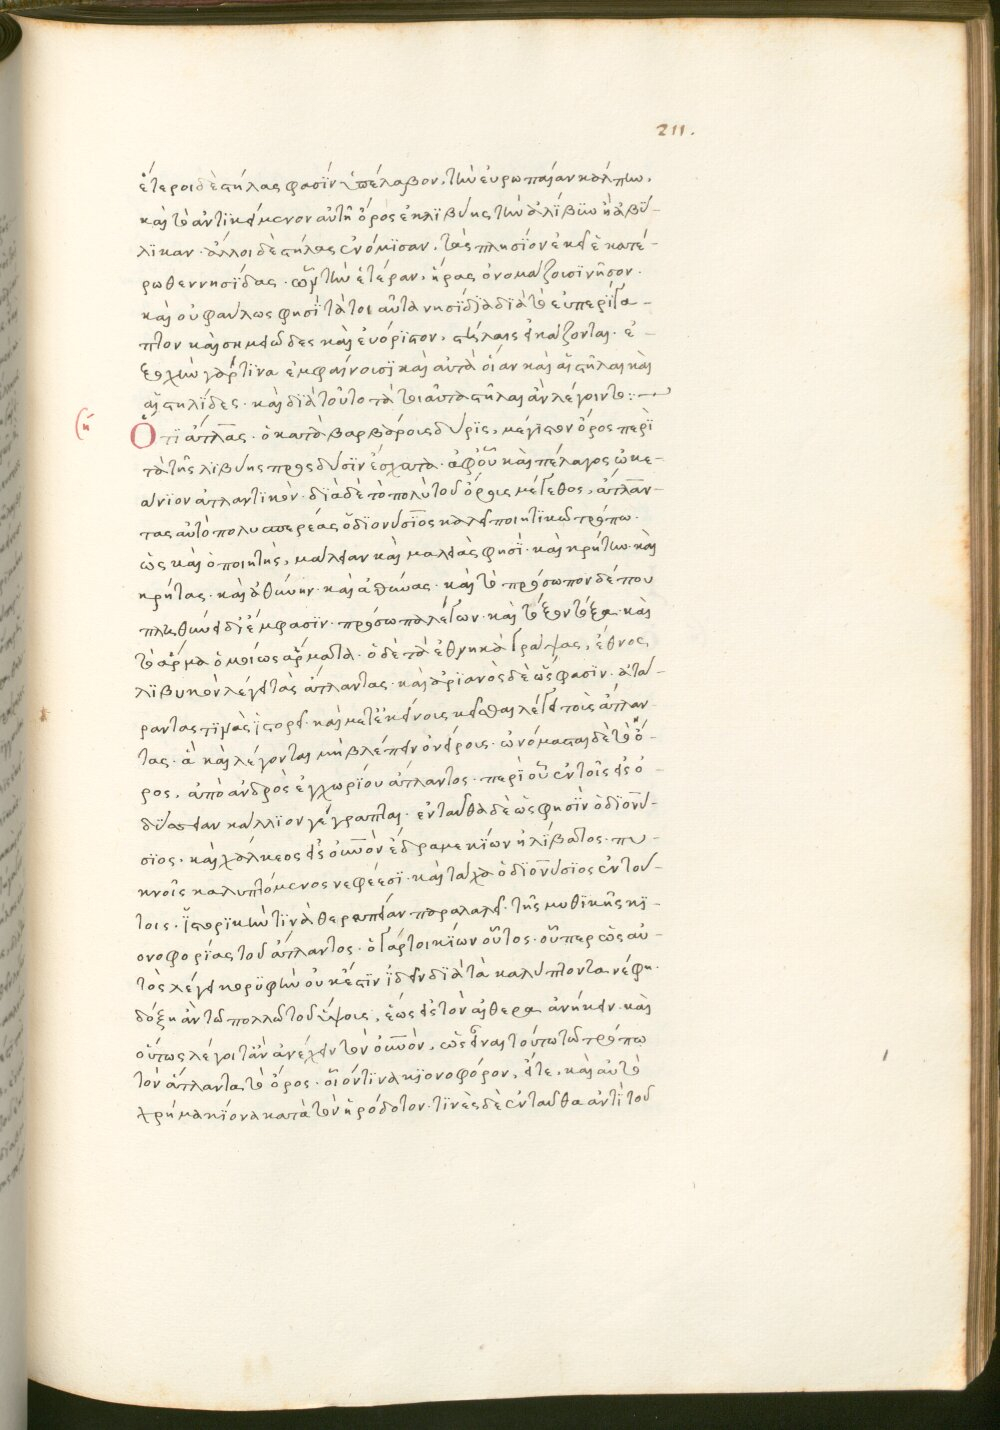 211.
ἕτεροι δὲ στήλας φασὶν ὑπέλαβον, τὴν εὐρωπαίαν κάλπην,
καὶ τὸ ἀντικείμενον αὐτῇ ὄρος ἐκ λιβύης τὴν ἀλίβην ἢ ἀβί-
λικαν. ἄλλοι δὲ στήλας ἐνόμισαν, τὰς πλησίον ἐκεῖ ἑκατέ-
ρωθεν νησίδας. ὧν τὴν ἑτέραν, ἥρας ὀνομάζουσι νῆσον.
καὶ οὐ φαύλως φησὶ τάττοι αὐτὰ νησίδια διὰ τὸ εὐπερίγρα-
πτον καὶ σημειῶδες καὶ εὐόριστον, στήλαις εἰκάζονται. ἐ-
ξοχὴν γάρ τινα ἐμφαίνουσι καὶ αὐτὰ οἵαν καὶ αἱ στῆλαι καὶ
αἱ στηλίδες. καὶ διὰ τοῦτο τὰ τοιαῦτα στῆλαι ἂν λέγοιντο:
(ή
Ὅτι ἄτλας. ὁ κατὰ βαρβάρους δύρις, μέγιστον ὄρος περὶ
τὰ τῆς λιβύης πρὸς δύσιν ἔσχατα. ἀφ' οὗ καὶ πέλαγος ὠκε-
άνιον ἀτλαντικόν. διὰ δὲ τὸ πολὺ τοῦ ὄρους μέγεθος, ἄτλαν-
τας αὐτὸ πολυσπερέας ὁ διονύσιος καλεῖ ποιητικῷ τρόπῳ.
ὡς καὶ ὁ ποιητής, μάλειαν καὶ μαλείας φησί. καὶ κρήτην καὶ
κρήτας. καὶ ἀθήνην. καὶ ἀθήνας. καὶ τὸ πρόσωπον δέ που
πληθύνει δι' ἔμφασιν. πρόσωπα λέγων. καὶ τὸ ξον τόξα. καὶ
τὸ ἅρμα ὁμοίως ἅρματα. ὁ δὲ τὰ ἐθνικὰ γράψας, ἔθνος
λιβυκὸν λέγει τὰς ἄτλαντας. καὶ ἀριανὸς δὲ ὥς φασιν. ἀτα-
ραντας τινὰς ἱστορεῖ. καὶ μετ' ἐκείνοις κεῖσθαι λέγει τοὺς ἄτλαν-
τας. ἃ καὶ λέγονται μὴ βλέπειν ὀνείρους. ὠνόμασται δὲ τὸ ὄ-
ρος, ἀπὸ ἀνδρὸς ἐγχωρίου ἄτλαντος. περὶ οὗ ἐν τοῖς εἰς ὀ-
δύσσειαν κάλλιον γέγραπται. ἐνταῦθα δὲ ὡς φησὶν ὁ διονύ-
σιος. καὶ χάλκεος εἰς οὐρανὸν ἔδραμε κίων ἠλίβατος. πυ-
κνοῖς καλυπτόμενος νεφέεσι. καὶ τάχα ὁ διονύσιος ἐν τού-
τοις. ἱστορικήν τινα θεραπείαν παραλαλεῖ. τῆς μυθικῆς κι-
ονοφορίας τοῦ ἄτλαντος. ὁ γάρ τοι κίων οὗτος. οὗπερ ὡς αὐ-
τὸς λέγει κορυφὴν οὐκ ἔστιν ἰδεῖν διὰ τὰ καλύπτοντα νέφη.
δόξη ἂν τῷ πολλῷ τοῦ ὕψους, ἕως εἰς τὸν αἰθέρα ἀνήκειν. καὶ
οὕτως λέγοιτ' ἂν ἀνέχειν τὸν οὐρανόν, ὡς εἶναι τούτῳ τῷ τρόπῳ
τὸν ἄτλαντα τὸ ὄρος. οἱονεί τινα κιονοφόρον, εἴτε, καὶ αὐτὸ
χρῆμα κίονα κατὰ τὸν ἡρόδοτον. τινὲς δὲ ἐνταῦθα ἀντὶ τοῦ